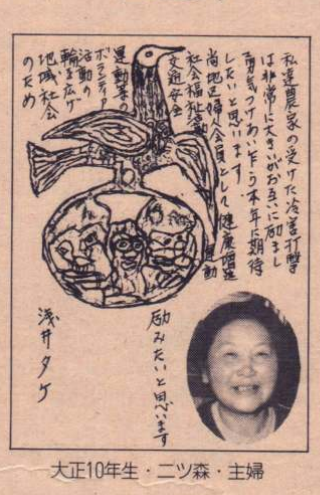 私達農家の受けた冷害打撃
は非常に大きいがお互いに励まし
勇気つけあい乍ら本年に期待
したいと思います
当地区婦人会員として健康増進
社会福祉活動 運動
交通安全
運動等の
ボランティア
活動の
輪を広げ
地域社会
のため
励みたいと思います
浅井タケ
大正10年生・二ツ森・主婦